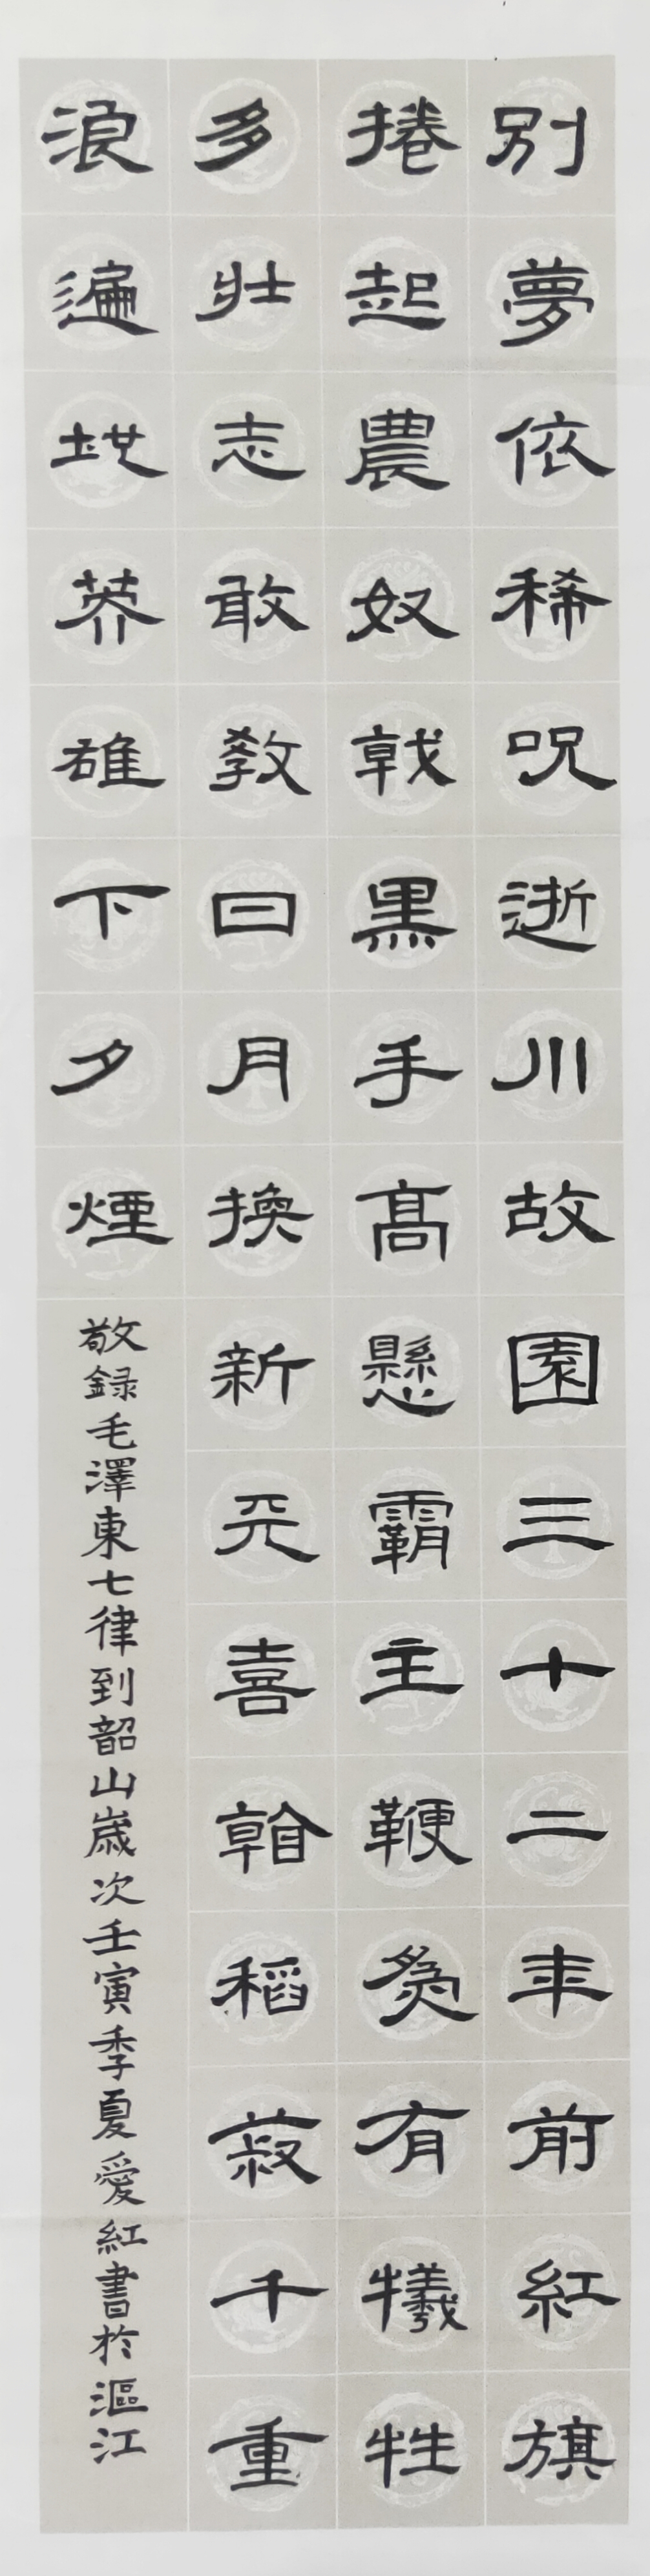 別夢依稀呪逝川故園三十二年前紅旗
捲起農奴戟黑手髙懸霸主鞭為有犧牲
多壯志敢教日月換新天喜看稻菽千重
浪遍地英雄下夕煙
敬録毛澤東七律到韶山歲次壬寅季夏愛紅書於漚江